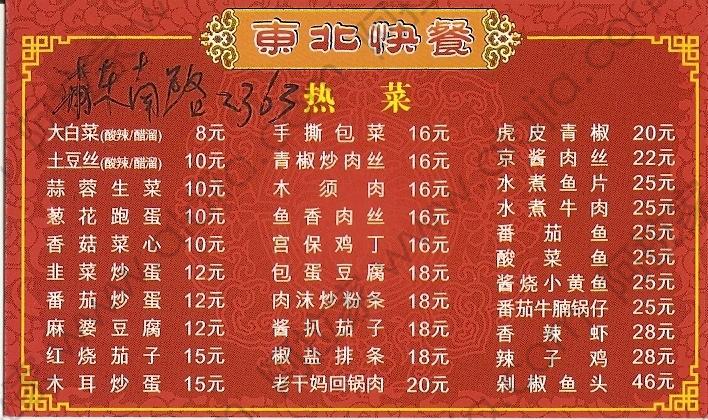 東北快餐
浦东南路2363
热菜
大白菜(酸辣/醋溜) 8元
土豆丝(酸辣/醋溜) 10元
蒜蓉生菜 10元
葱花跑蛋 10元
香菇菜心 10元
韭菜炒蛋 12元
番茄炒蛋 12元
麻婆豆腐 12元
红烧茄子 15元
木耳炒蛋 15元
手撕包菜 16元
青椒炒肉丝 16元
木须肉 16元
鱼香肉丝 16元
宫保鸡丁 16元
包蛋豆腐 18元
肉沫炒粉条 18元
酱扒茄子 18元
椒盐排条 18元
老干妈回锅肉 20元
虎皮青椒 20元
京酱肉丝 22元
水煮鱼片 25元
水煮牛肉 25元
番茄鱼 25元
酸菜鱼 25元
酱烧小黄鱼 25元
番茄牛腩锅仔 25元
香辣虾 28元
辣子鸡 28元
剁椒鱼头 46元